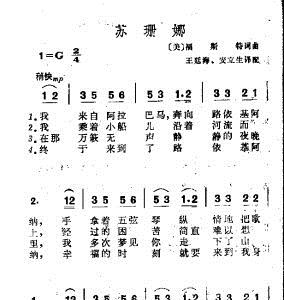 苏珊娜
1=G 2/4
〔美〕福斯特词曲
王廷海、安立生译配
稍快 mp
12 | 35 56 | 53 1·2 | 33 21
1.我 来自阿拉 巴马,奔向 路依基阿
2.我 乘着小船 儿沿着 河流而
3.在那 万籁无声 静静的夜晚
4.终 于来到了 路依基阿
2. 12 | 35 5·6 | 53 1·2 | 33 22
纳,手 拿着五弦 琴纵 情地把歌
上,经过的困 苦简直难以想
里,我 多次梦见 你走 下了山
纳,幸 福的时刻 就要来到我身